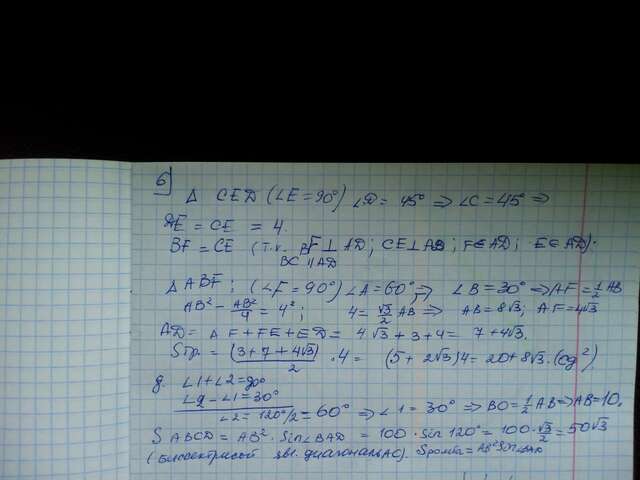 б)
Δ CED (∠E = 90°) ∠D = 45° ⇒ ∠C = 45° ⇒
DE = CE = 4.
BF = CE (т.к. BF ⊥ AD; CE ⊥ AD; F∈AD; E∈AD).
BC ∥ AD
Δ ABF; (∠F = 90°) ∠A = 60° ⇒ ∠B = 30° ⇒ AF = 1/2 AB
AB² - AB²/4 = 4²; 4 = √3/2 AB ⇒ AB = 8√3; AF = 4√3
AD = AF + FE + ED = 4√3 + 3 + 4 = 7 + 4√3.
Sтр. = (3 + 7 + 4√3)/2 · 4 = (5 + 2√3)4 = 20 + 8√3. (ед²)
д. ∠1 + ∠2 = 90°
∠2 - ∠1 = 30°
∠2 = 120°/2 = 60° ⇒ ∠1 = 30° ⇒ BO = 1/2 AB ⇒ AB = 10.
S ABCD = AB² · Sin∠BAD = 100 · Sin 120° = 100 · √3/2 = 50√3
(Биссектрисой явл. диагональ AC). Sромба = AB² Sin∠BAD